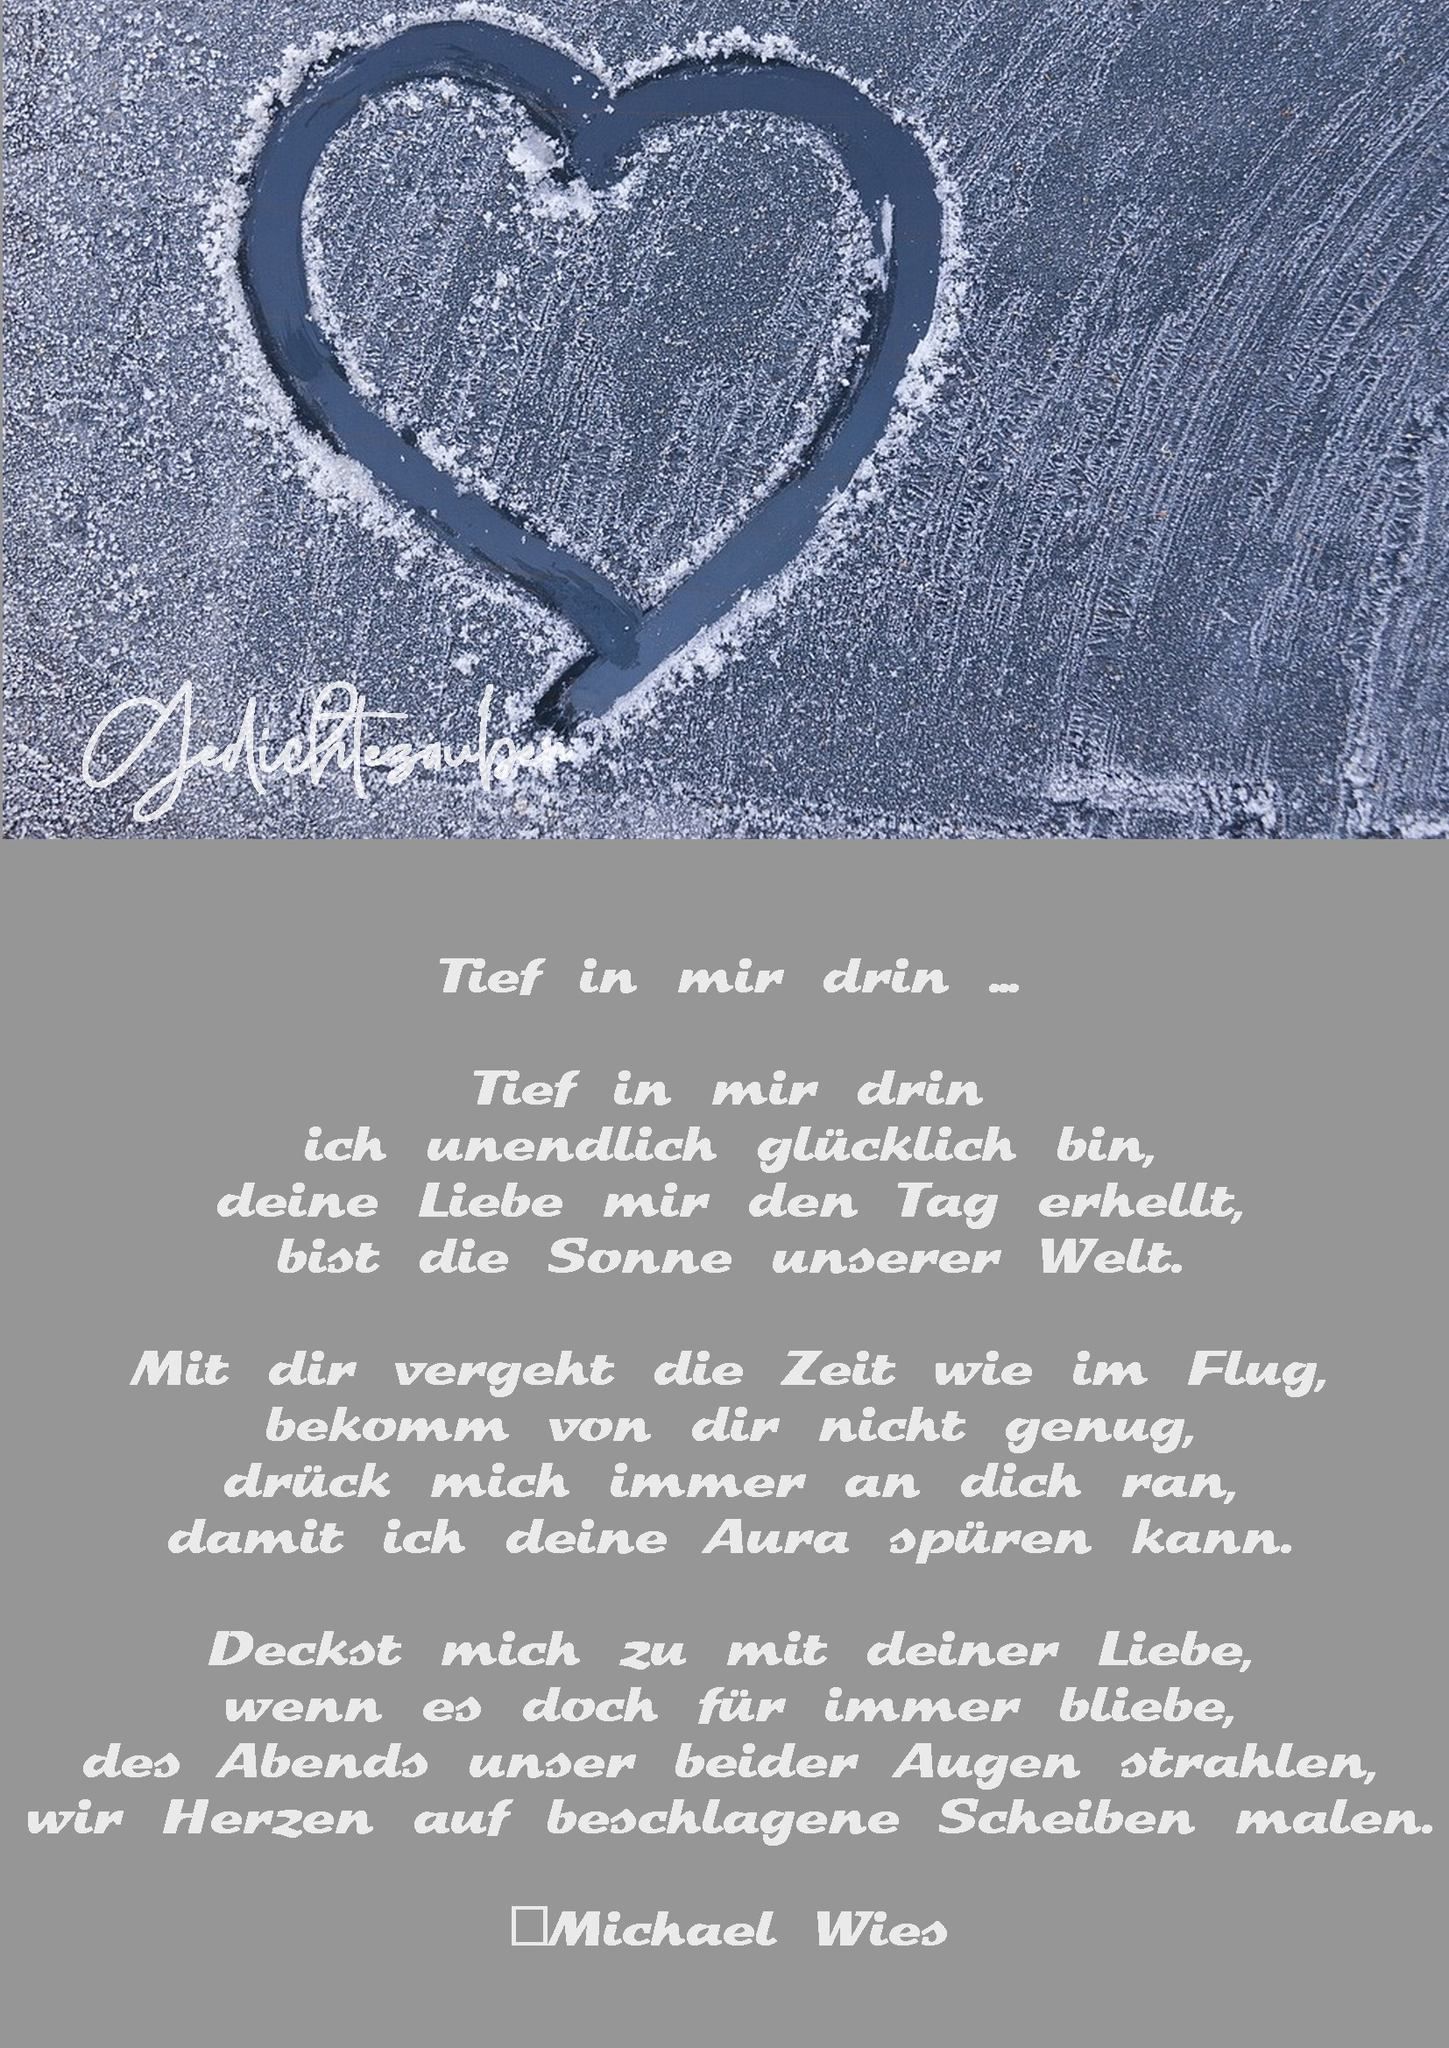 Gedichtezauber
Tief in mir drin ...
Tief in mir drin
ich unendlich glücklich bin,
deine Liebe mir den Tag erhellt,
bist die Sonne unserer Welt.
Mit dir vergeht die Zeit wie im Flug,
bekomm von dir nicht genug,
drück mich immer an dich ran,
damit ich deine Aura spüren kann.
Deckst mich zu mit deiner Liebe,
wenn es doch für immer bliebe,
des Abends unser beider Augen strahlen,
wir Herzen auf beschlagene Scheiben malen.
□Michael Wies